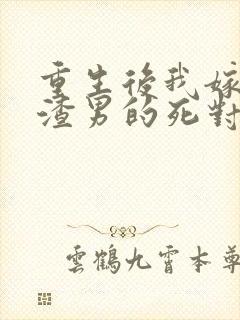 重生後我嫁
渣男的死對
雲鶴九霄本尊